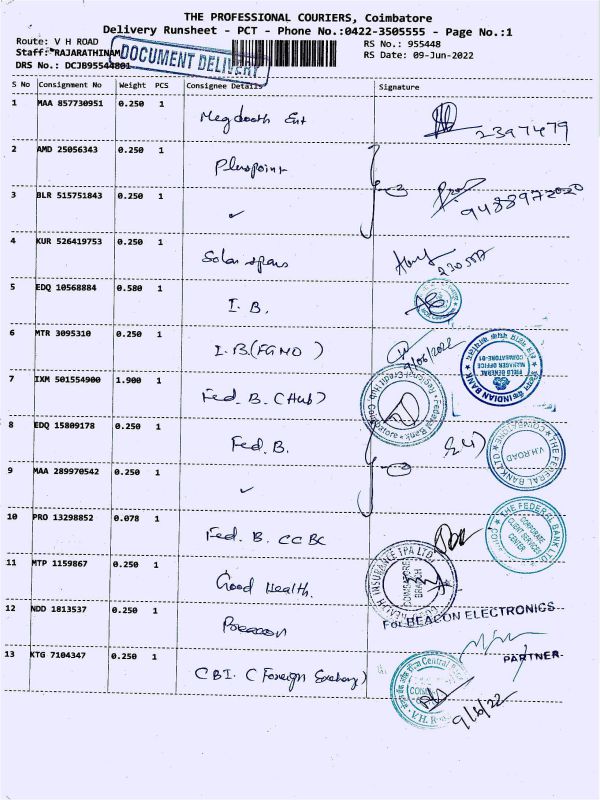 THE PROFESSIONAL COURIERS, Coimbatore
Delivery Runsheet - PCT - Phone No.:0422-3505555 - Page No.:1
Route: V H ROAD RS No.: 955448
Staff:"RAJARATHINAM RS Date: 09-Jun-2022
DOCUMENT DELIVERY
DRS No.: DCJB95544801
S No Consignment No Weight PCS Consignee Details Signature
1 MAA 857730951 0.250 1 Megdooth Ent 2397479
2 AMD 25056343 0.250 1 Pluspoint
3 BLR 515751843 0.250 1 ✓ 9488972020
4 KUR 526419753 0.250 1 Solar
5 EDQ 10568884 0.580 1 I. B.
6 MTR 3095310 0.250 1 I. B. (FGMO) 9/06/2022
INDIAN BANK
FIELD GENERAL
MANAGER OFFICE
COIMBATORE-01
7 IXM 501554900 1.900 1 Fed. B. (Hub)
Federal Bank
8 EDQ 15809178 0.250 1 Fed. B.
THE FEDERAL BANK LTD
V.H.ROAD
9 MAA 289970542 0.250 1 ✓
10 PRO 13298852 0.078 1 Fed. B. CCBC
THE FEDERAL BANK LTD
CORPORATE
CLIENT SERVICES
CENTER
11 MTP 1159867 0.250 1 Good Health.
HEALTH INSURANCE TPA LTD
COIMBATORE
BRANCH
12 NDD 1813537 0.250 1 Beacon
For BEACON ELECTRONICS
PARTNER
13 KTG 7104347 0.250 1 CBI. (Foreign Exchang)
Central
9/6/22